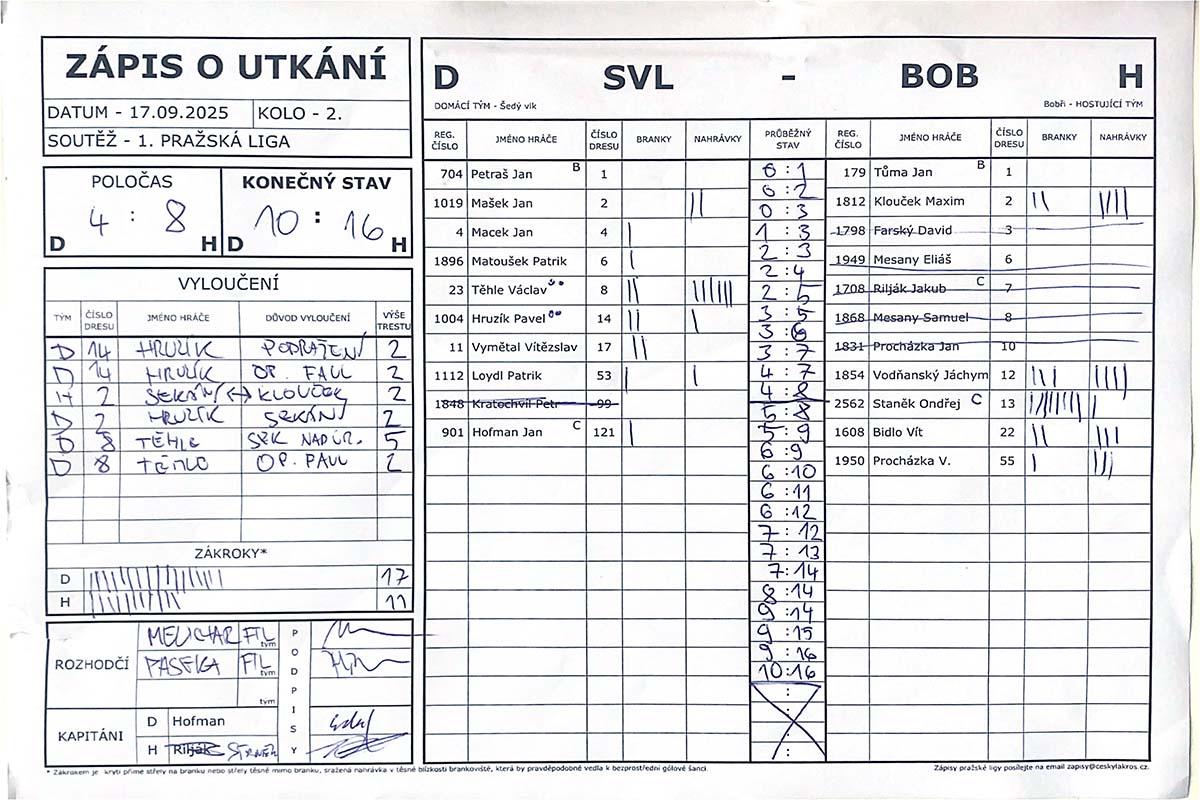 ZÁPIS O UTKÁNÍ
DATUM - 17.09.2025 KOLO - 2.
SOUTĚŽ - 1. PRAŽSKÁ LIGA
POLOČAS KONEČNÝ STAV
D 4 : 8 H D 10 : 16 H
VYLOUČENÍ
TÝM ČÍSLO DRESU JMÉNO HRÁČE DŮVOD VYLOUČENÍ VÝŠE TRESTU
D 14 HRUZÍK PODRAŽENÍ 2
D 14 HRUZÍK OP. FAUL 2
H 2 SEKÁNÍ <-> KLOUČEK 2
D 2 HRUZÍK SEKÁNÍ 2
D 8 TĚHLE SEK NADUR. 5
D 8 TĚHLE OP. FAUL 2
ZÁKROKY*
D 17
H 11
ROZHODČÍ
MELICHAR FIL tým
PASEKA FIL tým
tým
PODPISY
KAPITÁNI
D Hofman
H Rilják STANĚK
D SVL - BOB H
DOMÁCÍ TÝM - Šedý vlk Bobři - HOSTUJÍCÍ TÝM
REG. ČÍSLO JMÉNO HRÁČE ČÍSLO DRESU BRANKY NAHRÁVKY PRŮBĚŽNÝ STAV REG. ČÍSLO JMÉNO HRÁČE ČÍSLO DRESU BRANKY NAHRÁVKY
704 Petraš Jan B 1
1019 Mašek Jan 2 ||
4 Macek Jan 4 |
1896 Matoušek Patrik 6 |
23 Těhle Václav 8 ||
1004 Hruzík Pavel 14 || |
11 Vymětal Vítězslav 17 ||
1112 Loydl Patrik 53 | |
1848 Kratochvíl Petr 99
901 Hofman Jan C 121 |
0 : 1
0 : 2
0 : 3
1 : 3
2 : 3
2 : 4
2 : 5
3 : 5
3 : 6
3 : 7
4 : 7
4 : 8
5 : 8
5 : 9
6 : 9
6 : 10
6 : 11
6 : 12
7 : 12
7 : 13
7 : 14
8 : 14
9 : 14
9 : 15
9 : 16
10 : 16
:
:
:
179 Tůma Jan B 1
1812 Klouček Maxim 2 || ||||
1798 Farský David 3
1949 Mesany Eliáš 6
1708 Rilják Jakub C 7
1868 Mesany Samuel 8
1831 Procházka Jan 10
1854 Vodňanský Jáchym 12 ||| ||||
2562 Staněk Ondřej C 13
1608 Bidlo Vít 22 || |||
1950 Procházka V. 55 | |||
* Zákrokem je krytí přímé střely na branku nebo střely těsně mimo branku, sražená nahrávka v těsné blízkosti brankoviště, která by pravděpodobně vedla k bezprostřední gólové šanci.
Zápisy pražské ligy posílejte na email zapisy@ceskylakros.cz.